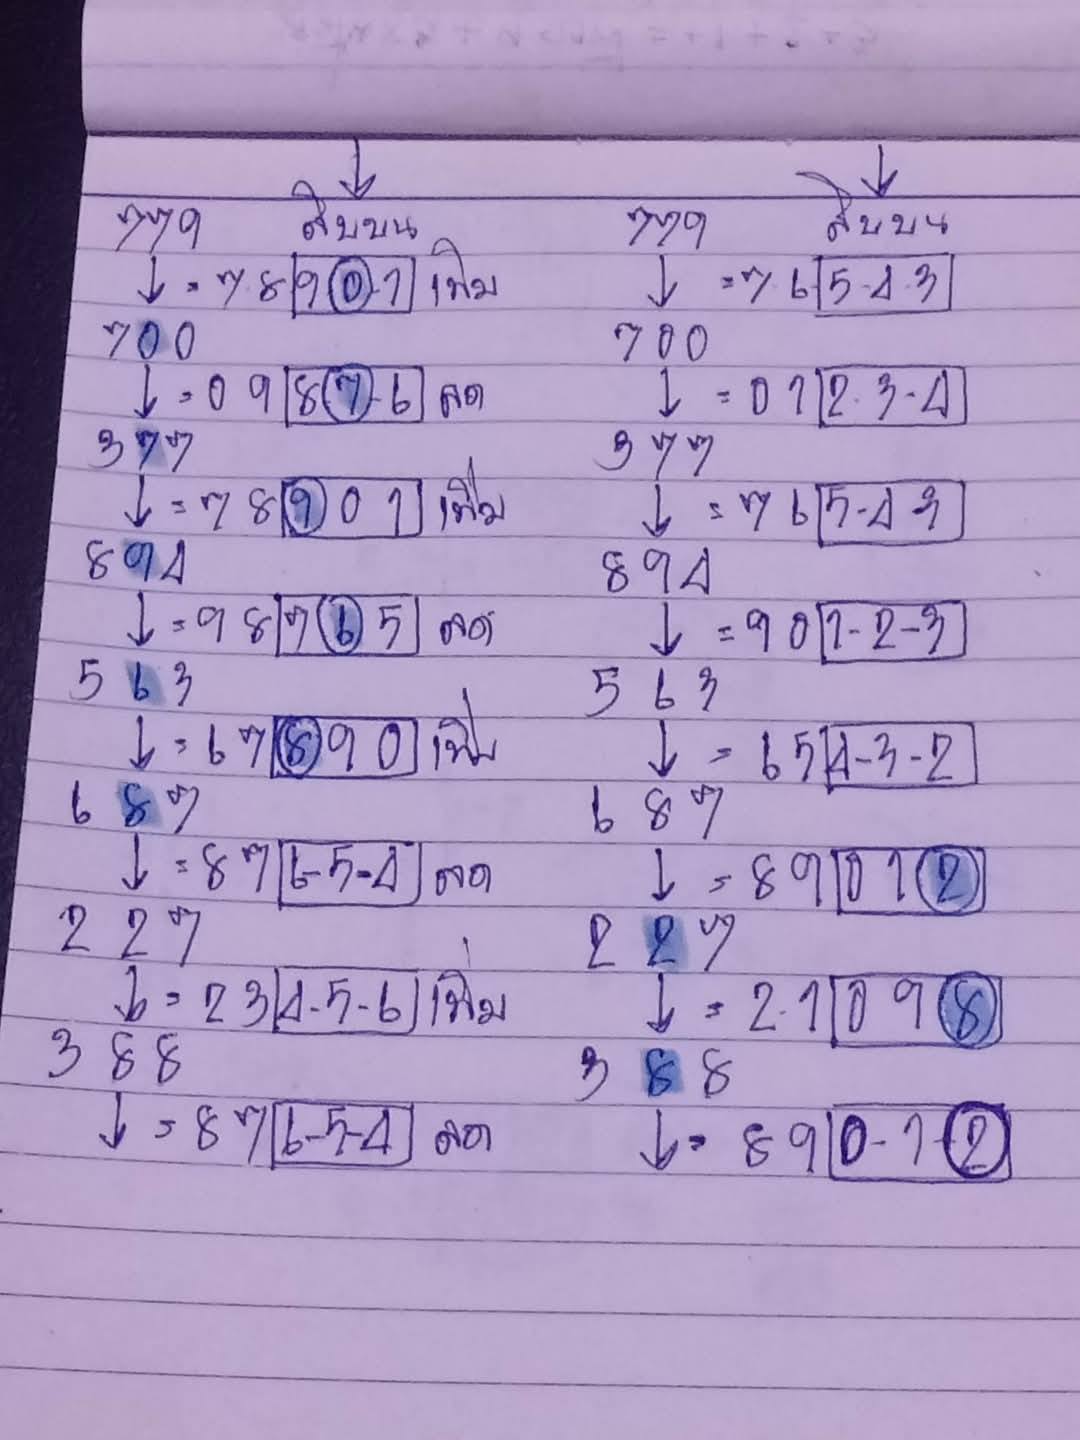 779 สิบบน 779 สิบบน
↓ = 7.8 9 0-1 เพิ่ม ↓ = 7.6 5-4-3
700 700
↓ = 09 8 7-6 ลด ↓ = 01 2-3-4
377 377
↓ = 78 9 0 1 เพิ่ม ↓ = 76 5-4 3
894 894
↓ = 98 7 6 5 ลด ↓ = 90 1-2-3
563 563
↓ = 67 8 9 0 เพิ่ม ↓ = 65 4-3-2
687 687
↓ = 87 6-5-4 ลด ↓ = 89 0 1 2
227 227
↓ = 23 4-5-6 เพิ่ม ↓ = 2.1 0 9 8
388 388
↓ = 87 6-5-4 ลด ↓ = 89 0-1-2